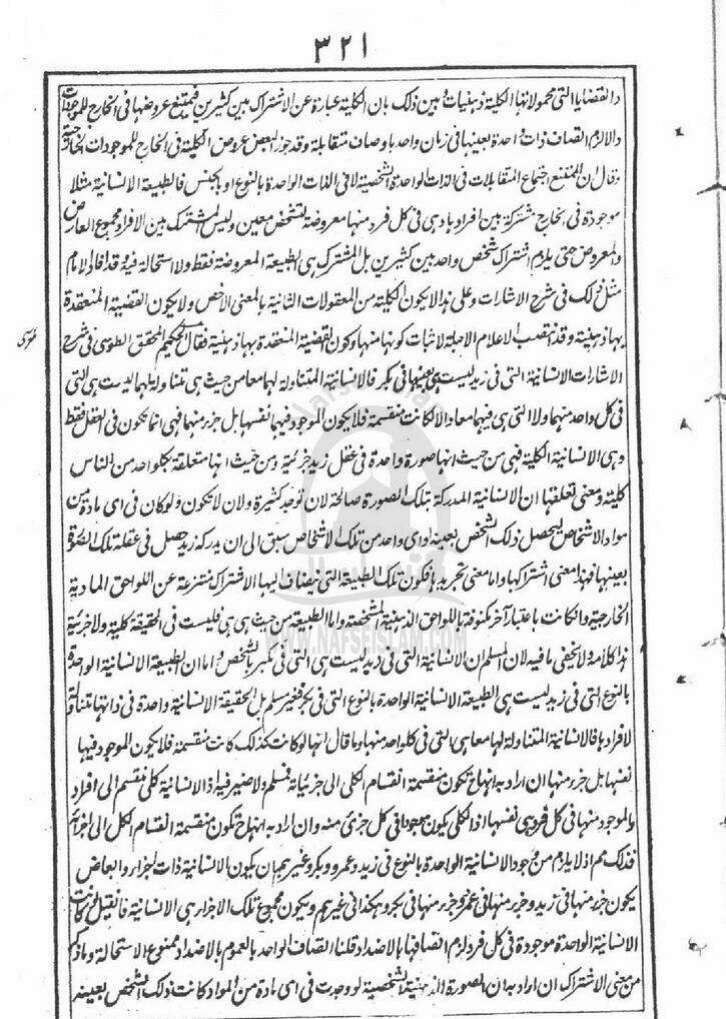 ٣٢١
والقضايا التى محمولاتها الكلية ذهنيات وبين ذلك بان الكلية عبارة عن الاشتراك بين كثيرين فيمتنع عروضها فى الخارج للموجودات
والا لزم اتصاف ذات واحدة بعينها فى زمان واحد باوصاف متقابلة وقد جوز البعض عروض الكلية فى الخارج للموجودات الخارجية
وقال ان الممتنع اجتماع المتقابلات فى الذات الواحدة الشخصية لا فى الذات الواحدة بالنوع او بالجنس فالطبيعة الانسانية مثلا
موجودة فى الخارج مشتركة بين افرادها وهى فى كل فرد منها معروضة لتشخص معين وليس المشترك بين الافراد مجموع العارض
والمعروض حتى يلزم اشتراك شخص واحد بين كثيرين بل المشترك هى الطبيعة المعروضة فقط ولا استحالة فيه قد قال الامام
مثل ذلك فى شرح الاشارات وعلى هذا لا يكون الكلية من المعقولات الثانية بالمعنى الاخص ولا يكون القضية المنعقدة
بها ذهنية وقد انتصب الاعلام الاجلة لاثبات كونها منها وكون القضية المنعقدة بها ذهنية فقال الحكيم المحقق الطوسى فى شرح
طوسى
الاشارات الانسانية التى فى زيد ليست هى بعينها فى بكر فالانسانية المتناولة لهما معا من حيث هى متناولة لهما ليست هى التى
فى كل واحد منهما ولا التى هى فيهما معا والا لكانت منقسمة فلا يكون الموجود فيهما نفسها بل جزء منها فهى انما تكون فى العقل فقط
وهى الانسانية الكلية فهى من حيث انها صورة واحدة فى عقل زيد جزئية ومن حيث انها متعلقة بكل واحد من الناس
كلية ومعنى تعلقها ان الانسانية المدركة بتلك الصورة صالحة لان توجد كثيرة ولان لا تكون ولو كان فى اى مادة من
مواد الاشخاص ليحصل ذلك الشخص بعينه او اى واحد من تلك الاشخاص سبق الى ان يدركه زيد حصل فى عقله تلك الصورة
بعينها فهذا معنى اشتراكها واما معنى تجريدها فكون تلك الطبيعة التى يضاف اليها الاشتراك منتزعة عن اللواحق المادية
الخارجية وان كانت باعتبار آخر مكنوفة باللواحق الذهنية المشخصة واما الطبيعة من حيث هى هى فليست فى الحقيقة كلية ولا جزئية
هذا كلامه ولا يخفى ما فيه لان المسلم ان الانسانية التى فى زيد ليست هى التى فى بكر بالشخص واما ان الطبيعة الانسانية الواحدة
بالنوع التى فى زيد ليست هى الطبيعة الانسانية الواحدة بالنوع التى فى بكر فغير مسلم بل الحقيقة الانسانية واحدة فى ذاتها متناولة
لافرادها فالانسانية المتناولة لهما معا هى التى فى كل واحد منهما وما قال انها لو كانت كذلك كانت منقسمة فلا يكون الموجود فيهما
نفسها بل جزء منها ان اراد به انها ح تكون منقسمة انقسام الكلى الى جزئياته فمسلم ولا ضير فيه اذ الانسانية كلى منقسم الى افراد
والموجود منها فى كل فرد هى نفسها اذ الكلى يكون بجوده فى كل جزئى منه وان اراد به انها ح تكون منقسمة انقسام الكل الى اجزائه
فذلك مم اذ لا يلزم من وجود الانسانية الواحدة بالنوع فى زيد وعمرو وبكر وغيرهم ان يكون بالانسانية ذات اجزاء وابعاض
يكون جزء منها فى زيد وجزء منها فى عمرو وجزء منها فى بكر وهكذا فى غيرهم ويكون مجموع تلك الاجزاء هى الانسانية فان قيل لو كانت
الانسانية الواحدة موجودة فى كل فرد لزم اتصافها بالاضداد قلنا اتصاف الواحد بالعموم بالاضداد ممنوع الاستحالة وما ذكر
من معنى الاشتراك ان اراد به ان الصورة الذهنية الشخصية لو وجدت فى اى مادة من المواد كانت ذلك الشخص بعينه
WWW.NAFSEISLAM.COM